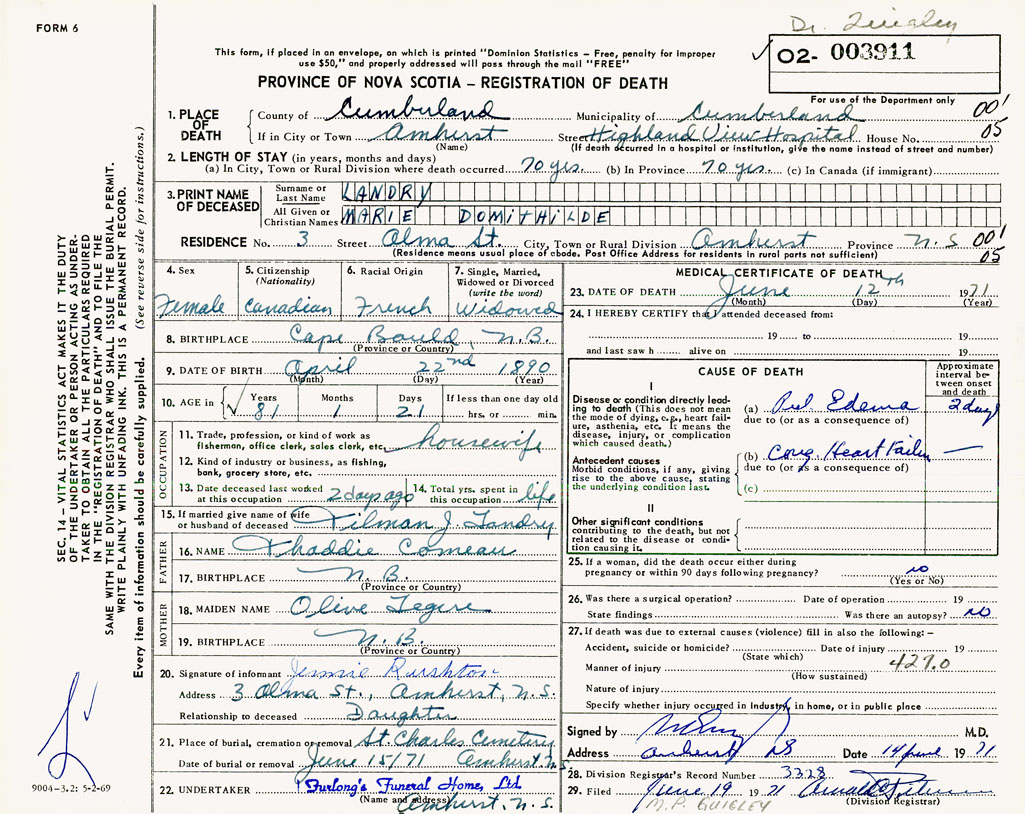 FORM 6
Dr. Quigley
This form, if placed in an envelope, on which is printed "Dominion Statistics – Free, penalty for improper
use $50," and properly addressed will pass through the mail "FREE"
02- 003911
PROVINCE OF NOVA SCOTIA – REGISTRATION OF DEATH
For use of the Department only
1. PLACE OF DEATH County of Cumberland Municipality of Cumberland 00'
If in City or Town Amherst Street Highland View Hospital House No. 05
(Name) (If death occurred in a hospital or institution, give the name instead of street and number)
2. LENGTH OF STAY (in years, months and days)
(a) In City, Town or Rural Division where death occurred 70 yrs. (b) In Province 70 yrs. (c) In Canada (if immigrant)
3. PRINT NAME OF DECEASED Surname or Last Name LANDRY
All Given or Christian Names MARIE DOMITHILDE
RESIDENCE No. 3 Street Alma St. City, Town or Rural Division Amherst Province N.S 00'
(Residence means usual place of abode. Post Office Address for residents in rural parts not sufficient) 05
4. Sex Female
5. Citizenship (Nationality) Canadian
6. Racial Origin French
7. Single, Married, Widowed or Divorced (write the word) Widowed
8. BIRTHPLACE Cape Bauld, N.B.
(Province or Country)
9. DATE OF BIRTH April 22nd 1890
(Month) (Day) (Year)
10. AGE in Years Months Days If less than one day old
81 1 21 hrs. or min.
OCCUPATION
11. Trade, profession, or kind of work as
fisherman, office clerk, sales clerk, etc. housewife
12. Kind of industry or business, as fishing,
bank, grocery store, etc.
13. Date deceased last worked at this occupation 2 days ago
14. Total yrs. spent in this occupation life
15. If married give name of wife
or husband of deceased Tilman J. Landry
FATHER
16. NAME Thaddie Comeau
17. BIRTHPLACE N.B.
(Province or Country)
MOTHER
18. MAIDEN NAME Olive Legere
19. BIRTHPLACE N.B.
(Province or Country)
20. Signature of informant Jennie Rushton
Address 3 Alma St., Amherst, N.S.
Relationship to deceased Daughter
21. Place of burial, cremation or removal St. Charles Cemetery
Date of burial or removal June 15/71 Amherst N.S.
22. UNDERTAKER Furlong's Funeral Home, Ltd
(Name and address) Amherst, N.S.
MEDICAL CERTIFICATE OF DEATH
23. DATE OF DEATH June 12th 1971
(Month) (Day) (Year)
24. I HEREBY CERTIFY that I attended deceased from:
19 to 19
and last saw h alive on 19
CAUSE OF DEATH
Approximate interval between onset and death
I
Disease or condition directly leading to death (This does not mean the mode of dying, e.g., heart failure, asthenia, etc. It means the disease, injury, or complication which caused death.)
(a) Pul Edema 2 days
due to (or as a consequence of)
Antecedent causes
Morbid conditions, if any, giving rise to the above cause, stating the underlying condition last.
(b) Cong. Heart Failure —
due to (or as a consequence of)
(c)
II
Other significant conditions
contributing to the death, but not related to the disease or condition causing it.
25. If a woman, did the death occur either during
pregnancy or within 90 days following pregnancy? no
(Yes or No)
26. Was there a surgical operation? Date of operation 19
State findings Was there an autopsy? no
27. If death was due to external causes (violence) fill in also the following: –
Accident, suicide or homicide? Date of injury 19
(State which)
Manner of injury 427.0
(How sustained)
Nature of injury
Specify whether injury occurred in Industry, in home, or in public place
Signed by M.D.
Address Amherst NS Date 14 June 1971
28. Division Registrar's Record Number 3328
29. Filed June 19 1971
(Division Registrar)
M.P. QUIGLEY
SEC. 14 – VITAL STATISTICS ACT MAKES IT THE DUTY
OF THE UNDERTAKER OR PERSON ACTING AS UNDER-
TAKER TO OBTAIN ALL THE PARTICULARS REQUIRED
IN THE "REGISTRATION OF DEATH" AND TO FILE THE
SAME WITH THE DIVISION REGISTRAR WHO SHALL ISSUE THE BURIAL PERMIT.
WRITE PLAINLY WITH UNFADING INK. THIS IS A PERMANENT RECORD.
Every item of information should be carefully supplied. (See reverse side for instructions.)
9004-3.2: 5-2-69